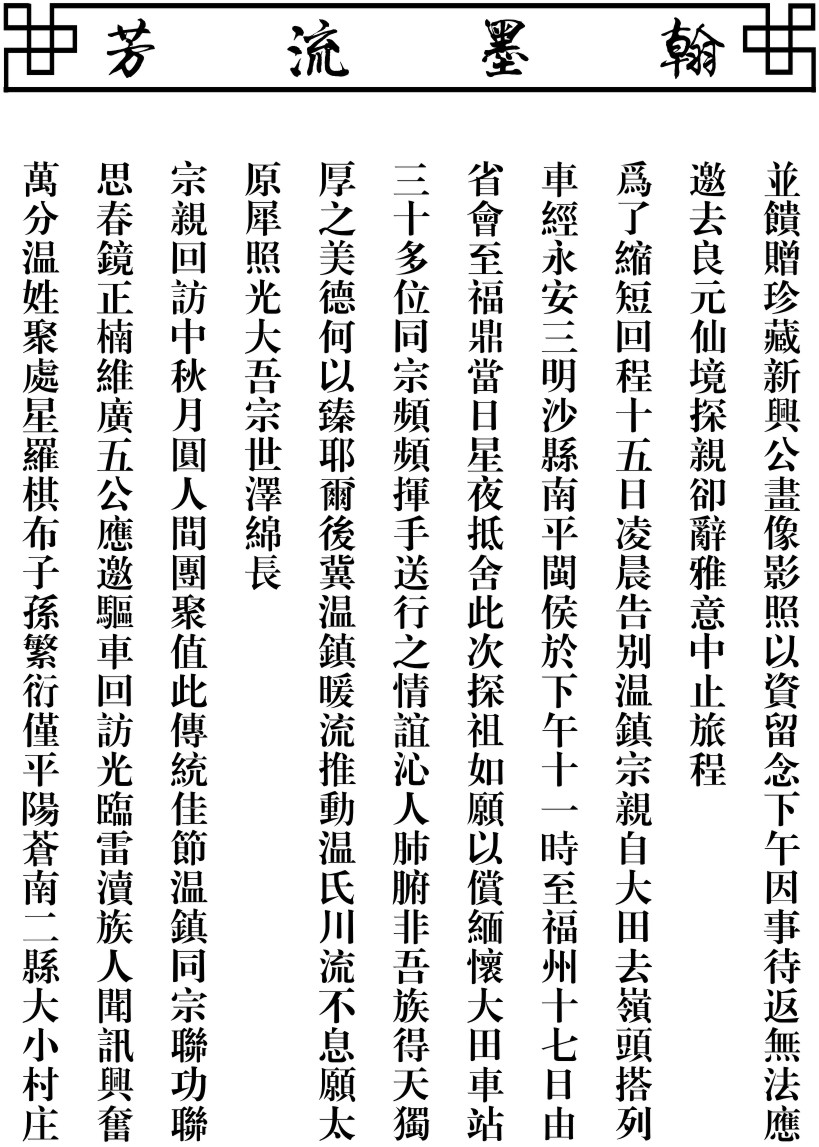 翰墨流芳
並饋贈珍藏新興公畫像影照以資留念下午因事待返無法應
邀去良元仙境探親卻辭雅意中止旅程
爲了縮短回程十五日凌晨告别温鎮宗親自大田去嶺頭搭列
車經永安三明沙縣南平閩侯於下午十一時至福州十七日由
省會至福鼎當日星夜抵舍此次探祖如願以償緬懷大田車站
三十多位同宗頻頻揮手送行之情誼沁人肺腑非吾族得天獨
厚之美德何以臻耶爾後冀温鎮暖流推動温氏川流不息願太
原犀照光大吾宗世澤綿長
宗親回訪中秋月圓人間團聚值此傳統佳節温鎮同宗聯功聯
思春鏡正楠維廣五公應邀驅車回訪光臨雷瀆族人聞訊興奮
萬分温姓聚處星羅棋布子孫繁衍僅平陽蒼南二縣大小村庄